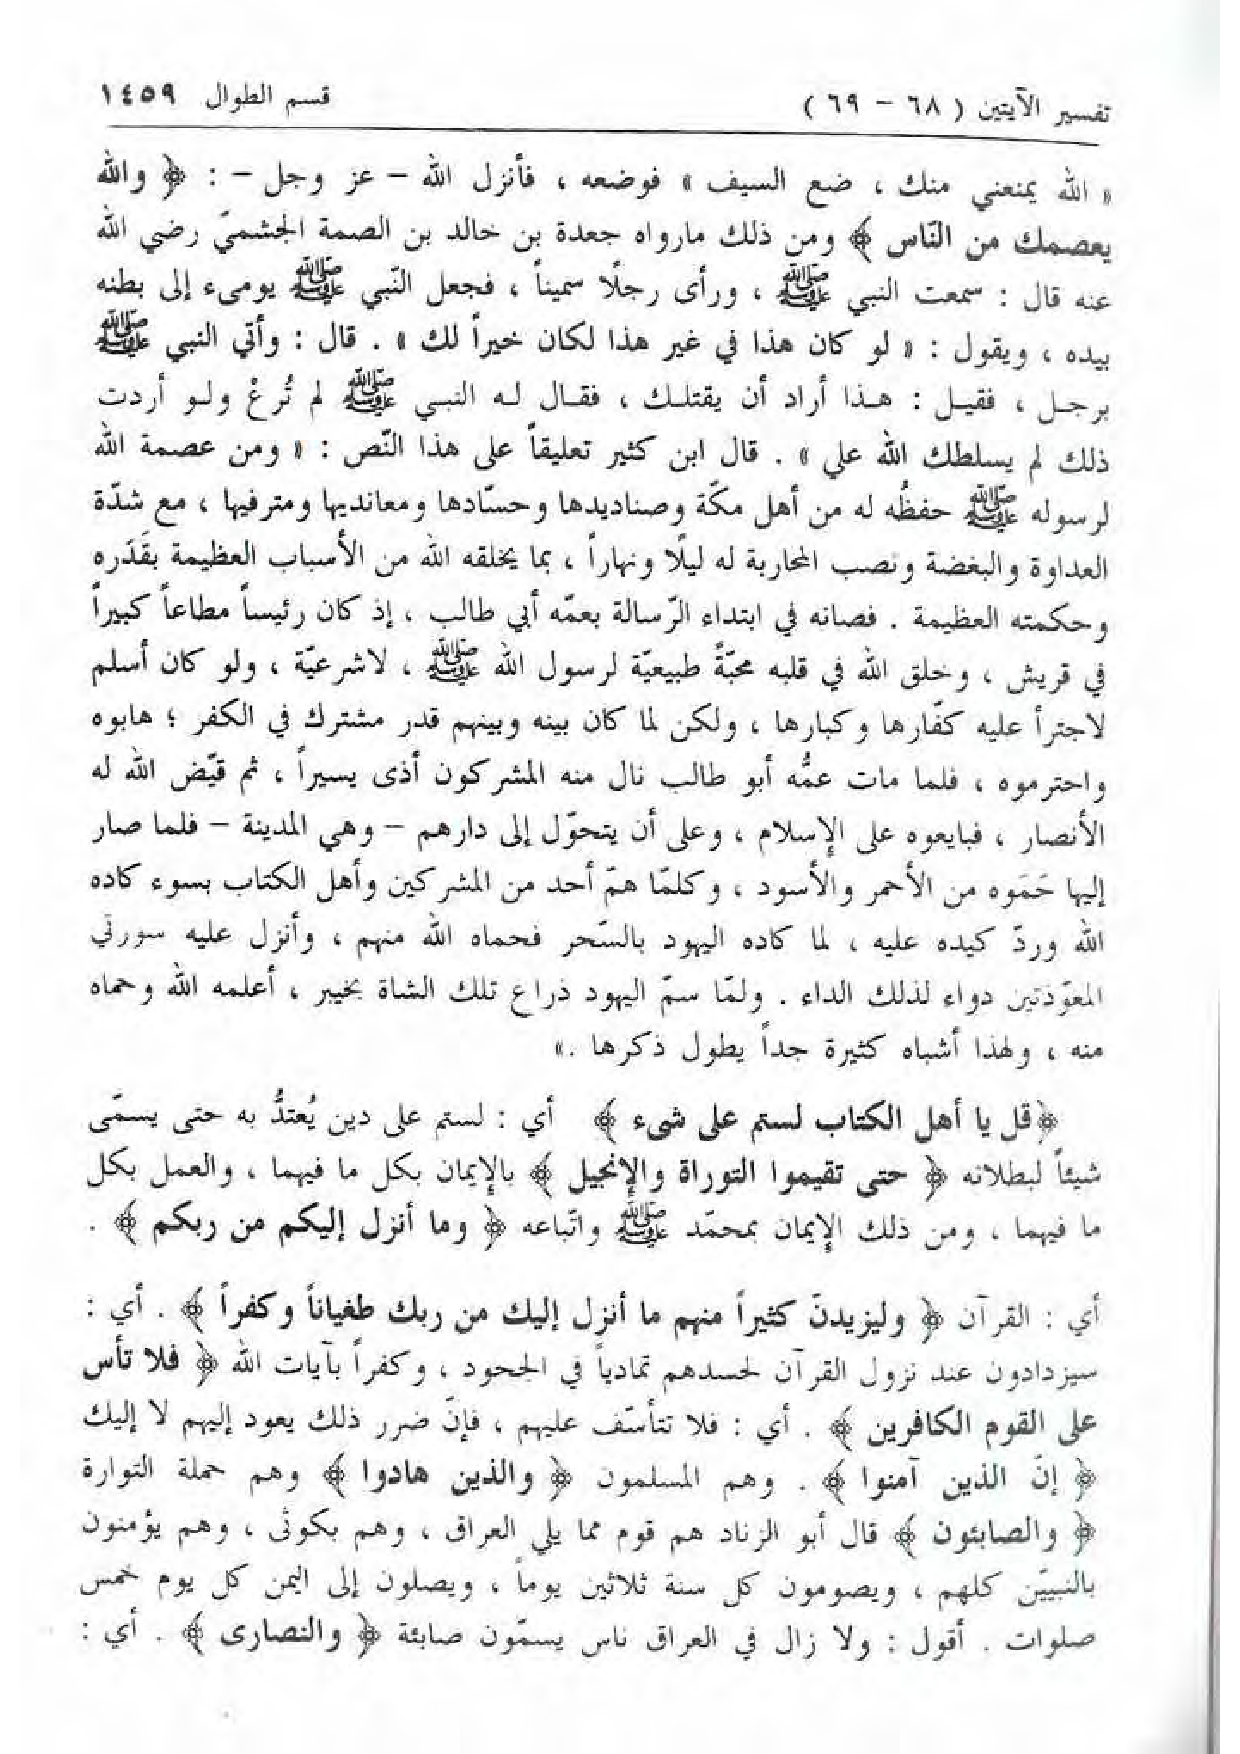 تفسير الآيتين ( ٦٨ – ٦٩ ) قسم الطوال ١٤٥٩
« الله يمنعني منك ، ضع السيف » فوضعه ، فأنزل الله – عز وجل – : ﴿ والله
يعصمك من النّاس ﴾ ومن ذلك مارواه جعدة بن خالد بن الصمة الجشميّ رضي الله
عنه قال : سمعت النبي ﷺ ، ورأى رجلًا سميناً ، فجعل النّبي ﷺ يومىء إلى بطنه
بيده ، ويقول : « لو كان هذا في غير هذا لكان خيراً لك » . قال : وأتي النبي ﷺ
برجل ، فقيل : هذا أراد أن يقتلك ، فقال له النبي ﷺ لم تُرعْ ولو أردت
ذلك لم يسلطك الله علي » . قال ابن كثير تعليقاً على هذا النّص : « ومن عصمة الله
لرسوله ﷺ حفظُه له من أهل مكّة وصناديدها وحسّادها ومعانديها ومترفيها ، مع شدّة
العداوة والبغضة ونصب المحاربة له ليلًا ونهاراً ، بما يخلقه الله من الأسباب العظيمة بقَدَره
وحكمته العظيمة . فصانه في ابتداء الرّسالة بعمّه أبي طالب ، إذ كان رئيساً مطاعاً كبيراً
في قريش ، وخلق الله في قلبه محبّةً طبيعيّة لرسول الله ﷺ ، لاشرعيّة ، ولو كان أسلم
لاجترأ عليه كفّارها وكبارها ، ولكن لما كان بينه وبينهم قدر مشترك في الكفر ؛ هابوه
واحترموه ، فلما مات عمُّه أبو طالب نال منه المشركون أذى يسيراً ، ثم قيّض الله له
الأنصار ، فبايعوه على الإسلام ، وعلى أن يتحوّل إلى دارهم – وهي المدينة – فلما صار
إليها حَمَوه من الأحمر والأسود ، وكلمّا همّ أحد من المشركين وأهل الكتاب بسوء كاده
الله وردّ كيده عليه ، لما كاده اليهود بالسّحر فحماه الله منهم ، وأنزل عليه سورتي
المعوّذتين دواء لذلك الداء . ولمّا سمّ اليهود ذراع تلك الشاة بخيبر ، أعلمه الله وحماه
منه ، ولهذا أشباه كثيرة جداً يطول ذكرها .»
﴿قل يا أهل الكتاب لستم على شىء ﴾ أي : لستم على دين يُعتدُّ به حتى يسمّى
شيئاً لبطلانه ﴿ حتى تقيموا التوراة والإنجيل ﴾ بالإيمان بكل ما فيهما ، والعمل بكل
ما فيهما ، ومن ذلك الإيمان بمحمّد ﷺ واتّباعه ﴿ وما أنزل إليكم من ربكم ﴾ .
أي : القرآن ﴿ وليزيدنّ كثيراً منهم ما أنزل إليك من ربك طغياناً وكفراً ﴾ . أي :
سيزدادون عند نزول القرآن لحسدهم تمادياً في الجحود ، وكفراً بآيات الله ﴿ فلا تأس
على القوم الكافرين ﴾ . أي : فلا تتأسّف عليهم ، فإنّ ضرر ذلك يعود إليهم لا إليك
﴿ إنّ الذين آمنوا ﴾ . وهم المسلمون ﴿ والذين هادوا ﴾ وهم حملة التوارة
﴿ والصابئون ﴾ قال أبو الزناد هم قوم مما يلي العراق ، وهم بكوثى ، وهم يؤمنون
بالنبيّين كلهم ، ويصومون كل سنة ثلاثين يوماً ، ويصلون إلى اليمن كل يوم خمس
صلوات . أقول : ولا زال في العراق ناس يسمّون صابئة ﴿ والنصارى ﴾ . أي :